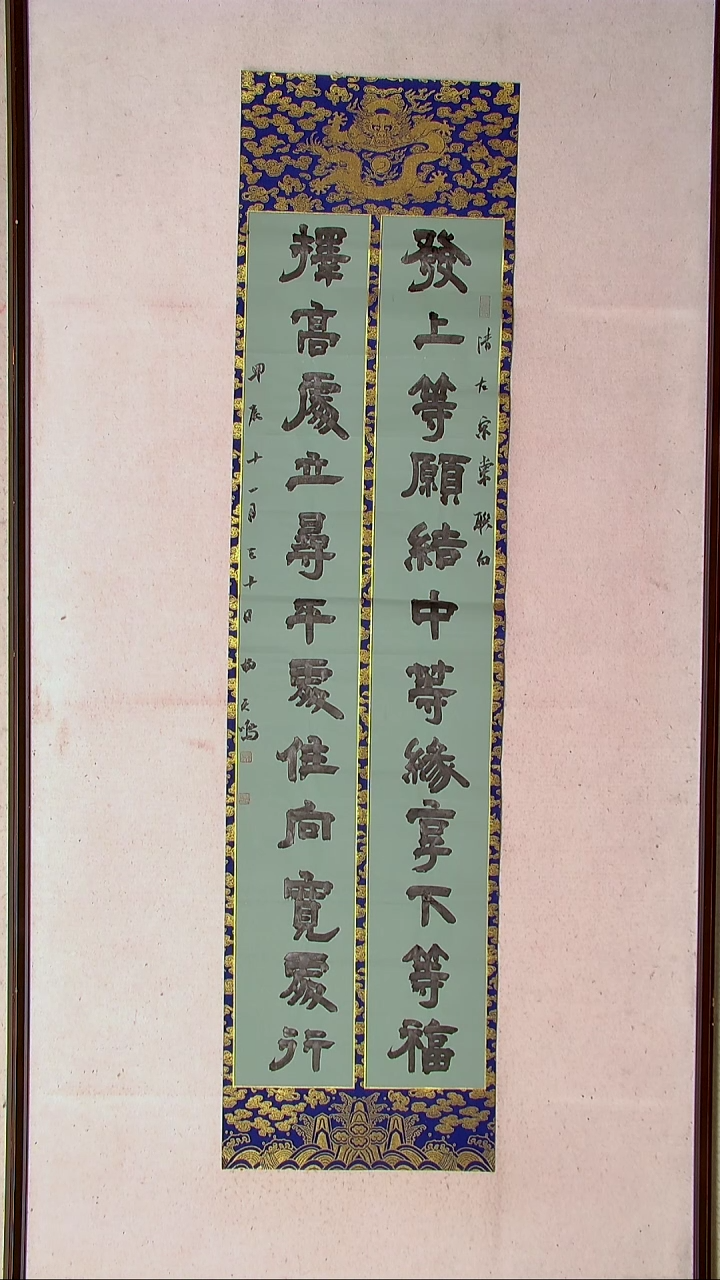 清左宗棠聯句
發上等願結中等緣享下等福
擇高處立尋平處住向寬處行
甲辰十一月三十日天鳴